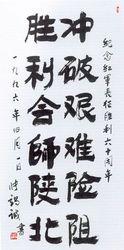 紀念紅軍長征胜利六十周年
冲破艰难险阻
胜利会师陕北
一九九六年四月一日
书